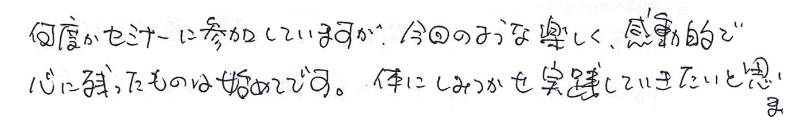 何度かセミナーに参加していますが、今回のような楽しく、感動的で
心に残ったものは始めてです。体にしみつかせ実践していきたいと思い
ま